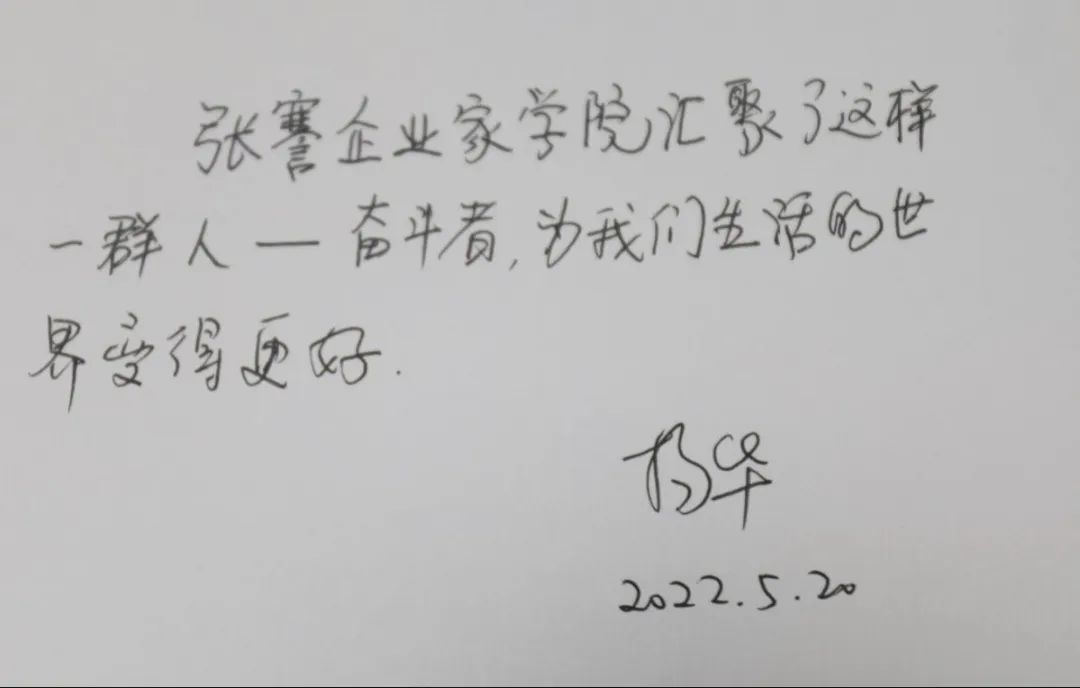 张謇企业家学院汇聚了这样
一群人一奋斗者,为我们生活的世
界变得更好.
杨华
2022.5.20